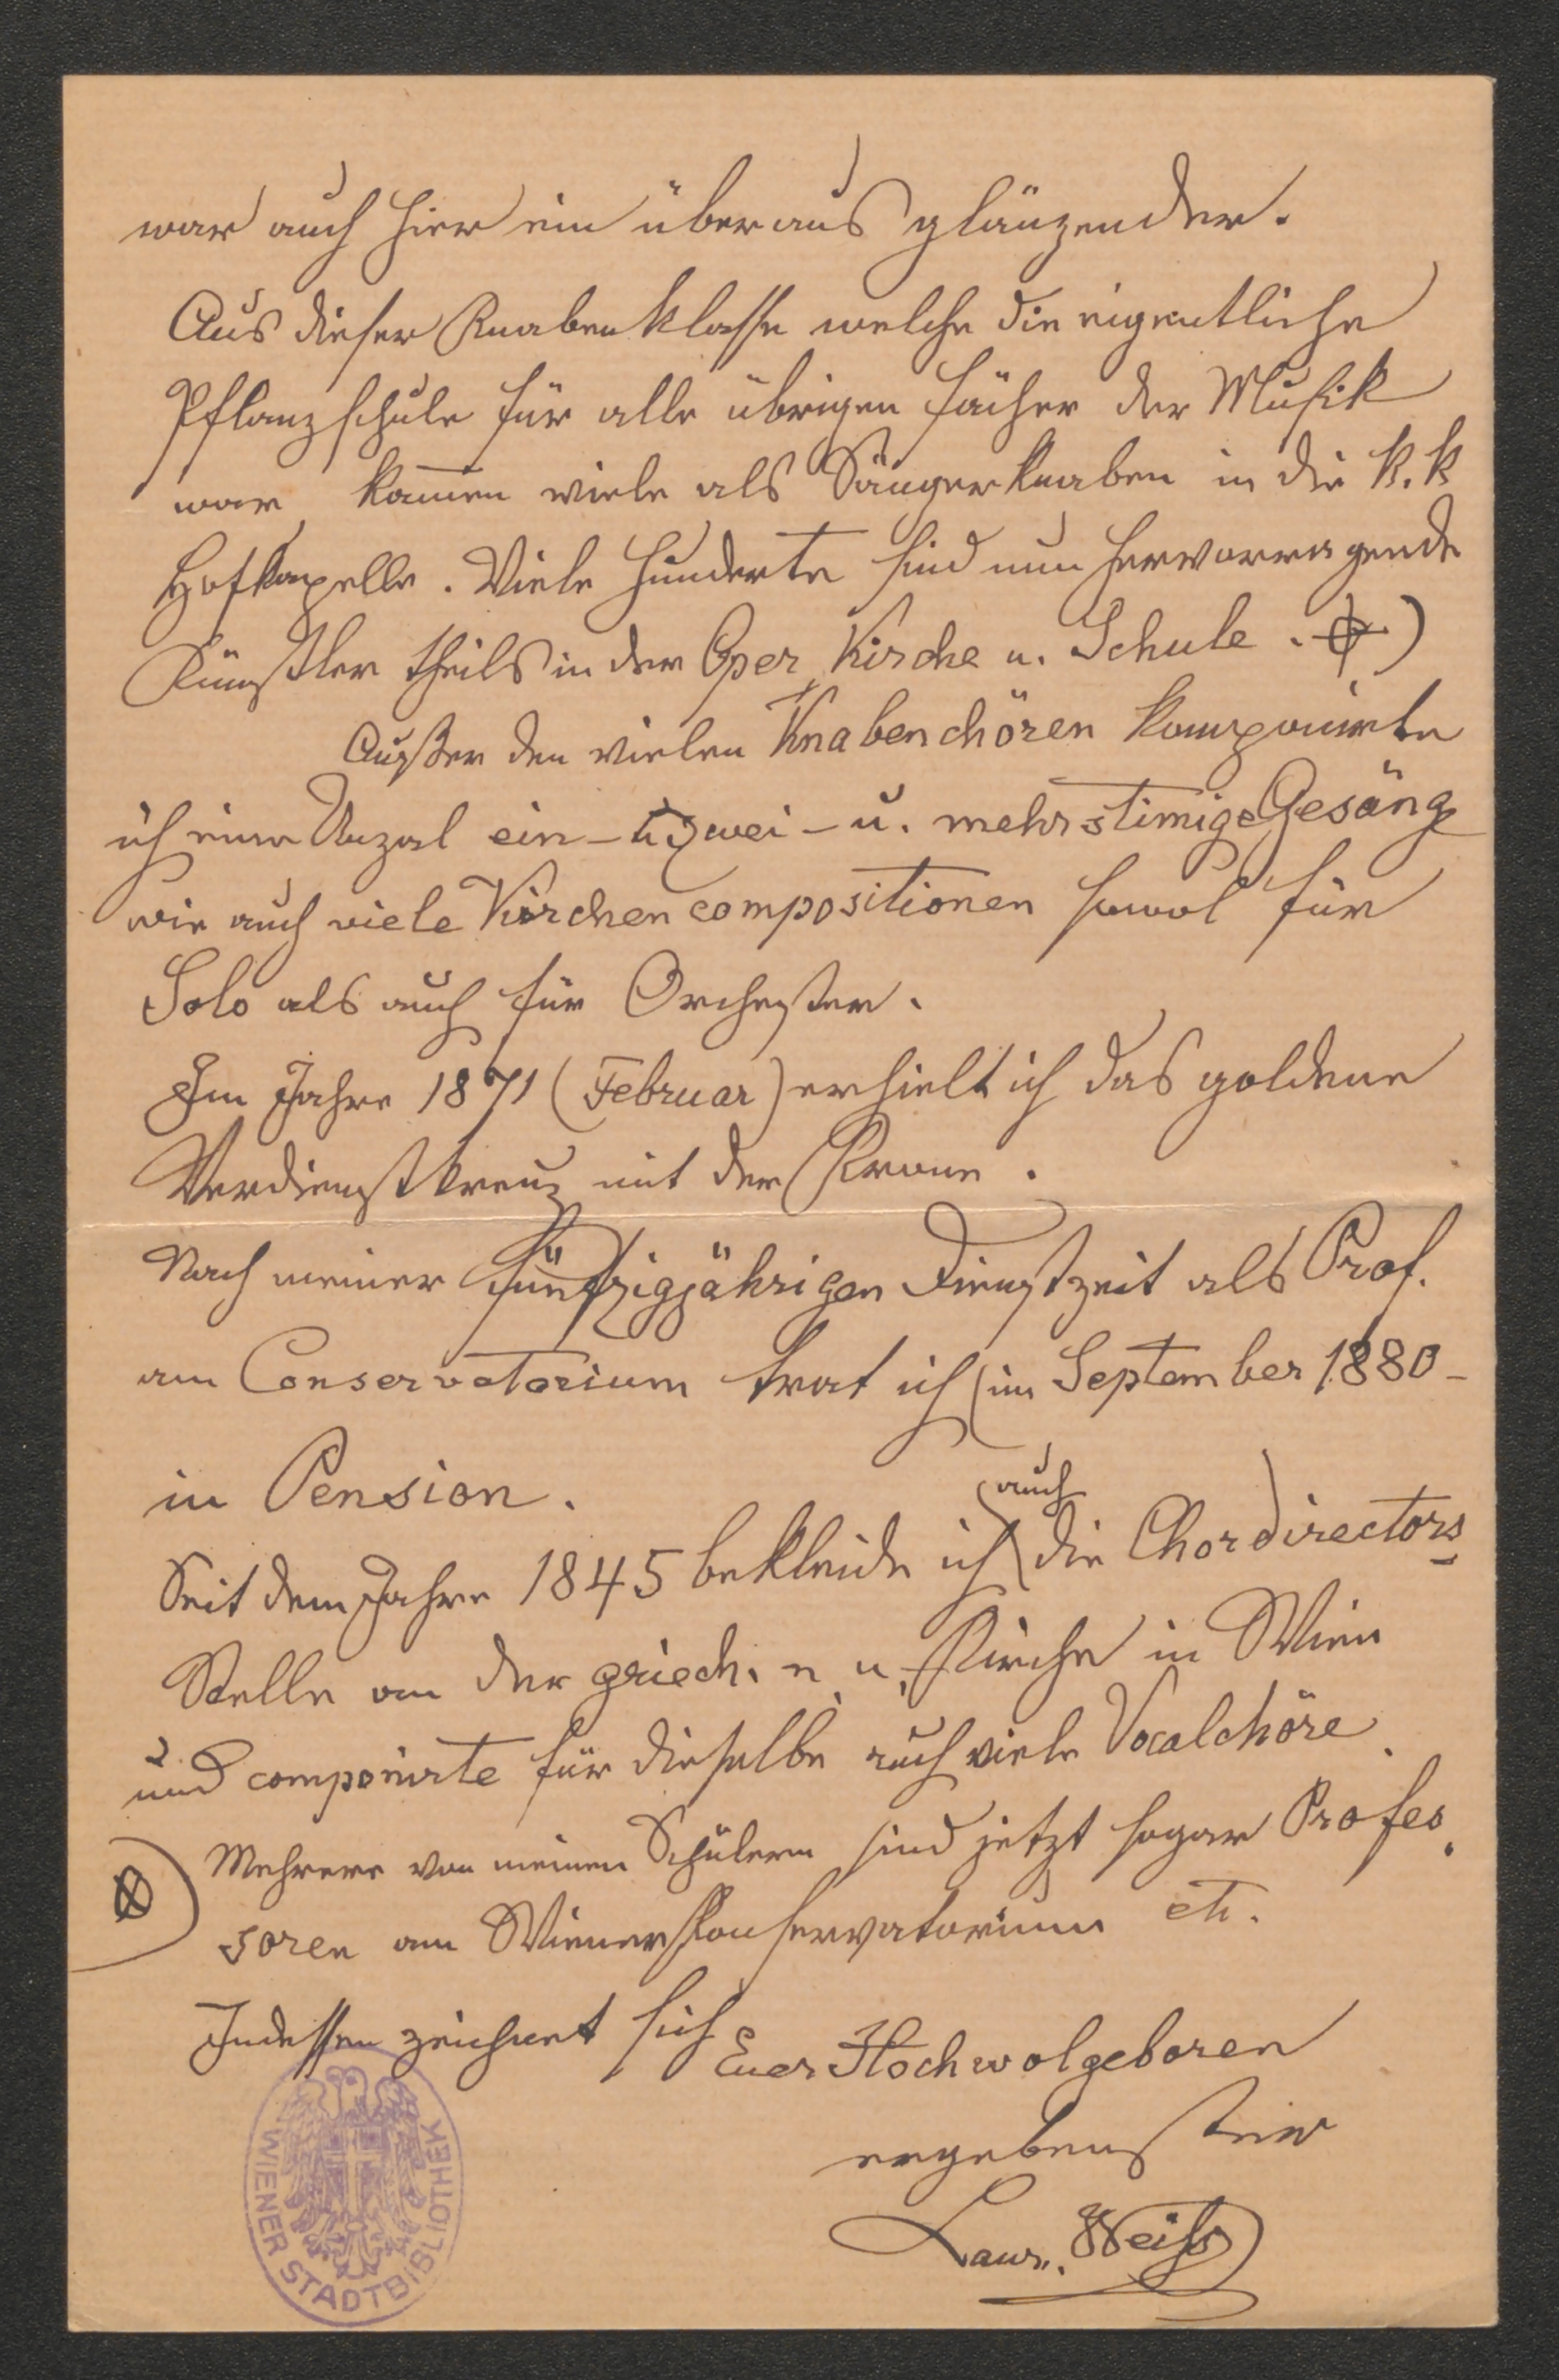 war auch hier ein überaus glänzender.
Aus dieser Knabenklasse welche die eigentliche
Pflanzschule für alle übrigen Fächer der Musik
war, kam̅en viele als Sängerknaben in die k. k
Hofkapelle. Viele Hunderte sind nun hervorragende
Künstler theils in der Oper, Kirche u. Schule.
Außer den vielen Knabenchören komponirte
ich eine Anzal ein- zwei- u. mehrstimige Gesäng
wie auch viele Kirchencompositionen sowol für
Solo als auch für Orchester.
Im Jahre 1871 (Februar) erhielt ich das goldene
Verdienstkreuz mit der Krone.
Nach meiner fünfzigjährigen Dienstzeit als Prof.
am Conservatorium trat ich im September 1880 -
in Pension.
auch
Seit dem Jahre 1845 bekleide ich die Chordirectors
Stelle an der griech. n. u. Kirche in Wien
und componirte für dieselbe auch viele Vocalchöre.
Mehrere von meinen Schülern sind jetzt sogar Profes
soren am Wiener Konservatorium etc.
Indessen zeichnet sich
Euer Hochwolgeboren
ergebenster
Laur. Weiß
WIENER STADTBIBLIOTHEK